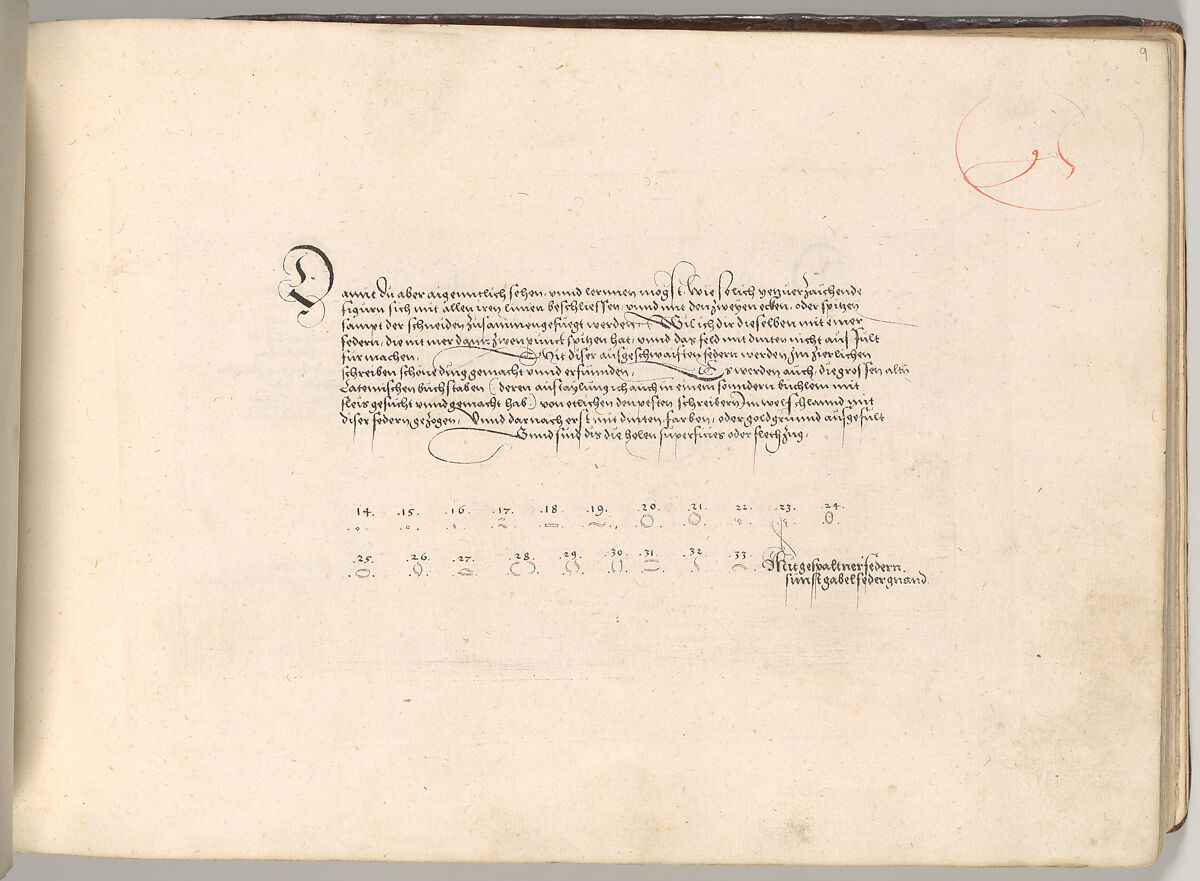 9
Damit du aber aigenntlich sehen, vnnd lernnen mögst, wie solich yetzuerzaichende
figurn sich mit allen iren linien beschliessen, vnnd mit den zweyen ecken, oder spitzen
sampt der schneiden zusamengefuegt werden, Wil ich dir dieselben mit einer
federn, die nit mer dann zwen punct spitzen hat, vnnd das feld mit dinten nicht aus fült
für machen. Mit diser ausgeschwaifften federn werden im zierlichen
schreiben schöne ding gemacht vnnd erfunnden, Es werden auch, die grossen altn
Lateinischen büchstaben (deren austaylung ich auch in einem sonndern büchlein mit
fleis gesücht vnnd gemacht hab) von etlichen den pesten schreibern im welschlannd mit
diser federn gezogen, Vnnd darnach erst mit dinten, farben, oder goldgrünnd ausgefült
Vnnd sind dis die holen superficies oder flechzüg.
14. .15. .16. .17. .18. .19. .20. .21. 22. .23. .24.
.25. .26. .27. .28. .29. .30. .31. .32. .33. Mit gespaltner federn.
sünst gabelfeder gnand